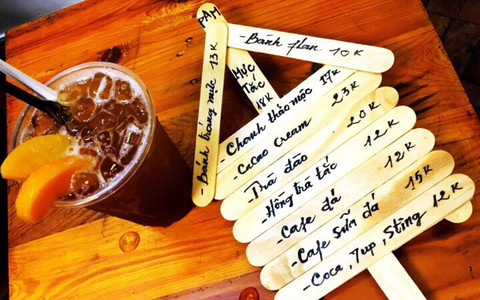 PAM
Bánh tráng mực 13K
Bánh flan 10K
Mực
Tắc
18K
-Chanh thảo mộc 17K
-Cacao cream 23K
-Trà đào 20K
-Hồng trà tắc 12K
-Cafe đá 12K
-Cafe Sữa đá 15K
-Coca, 7up, Sting 12K